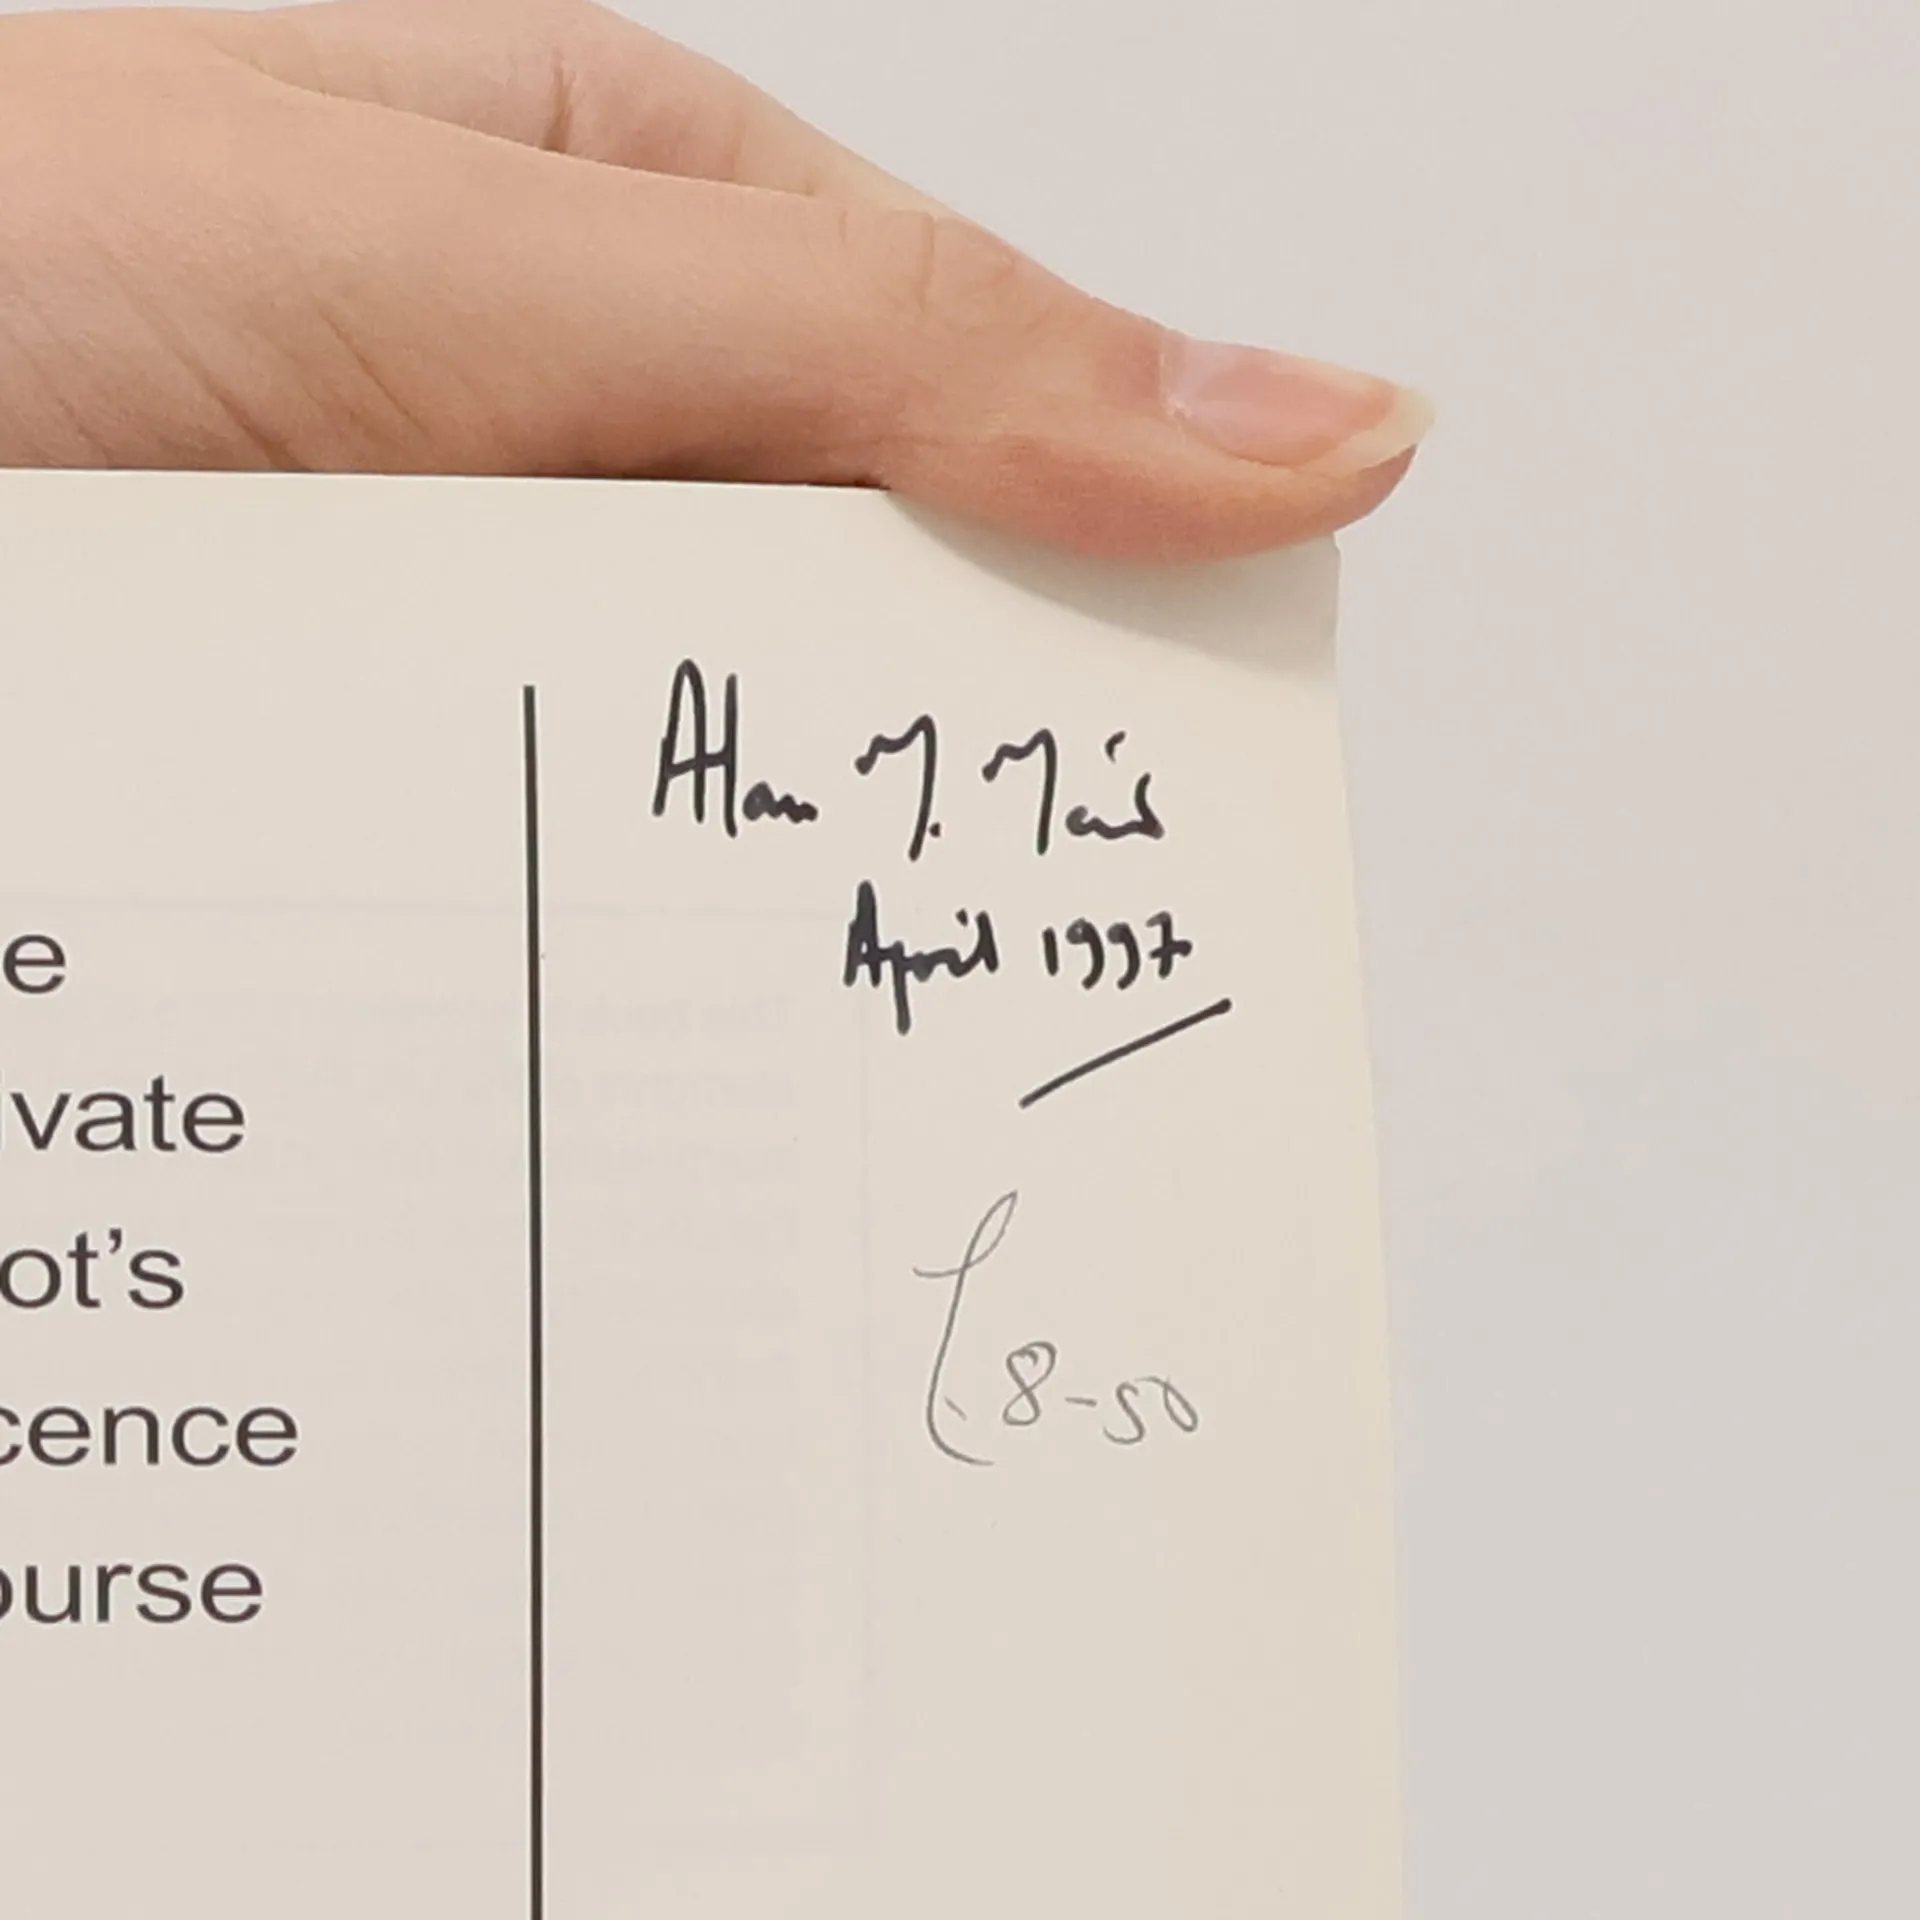 Alan M. Mair
April 1997
£8-50
e
ivate
ot's
cence
ourse